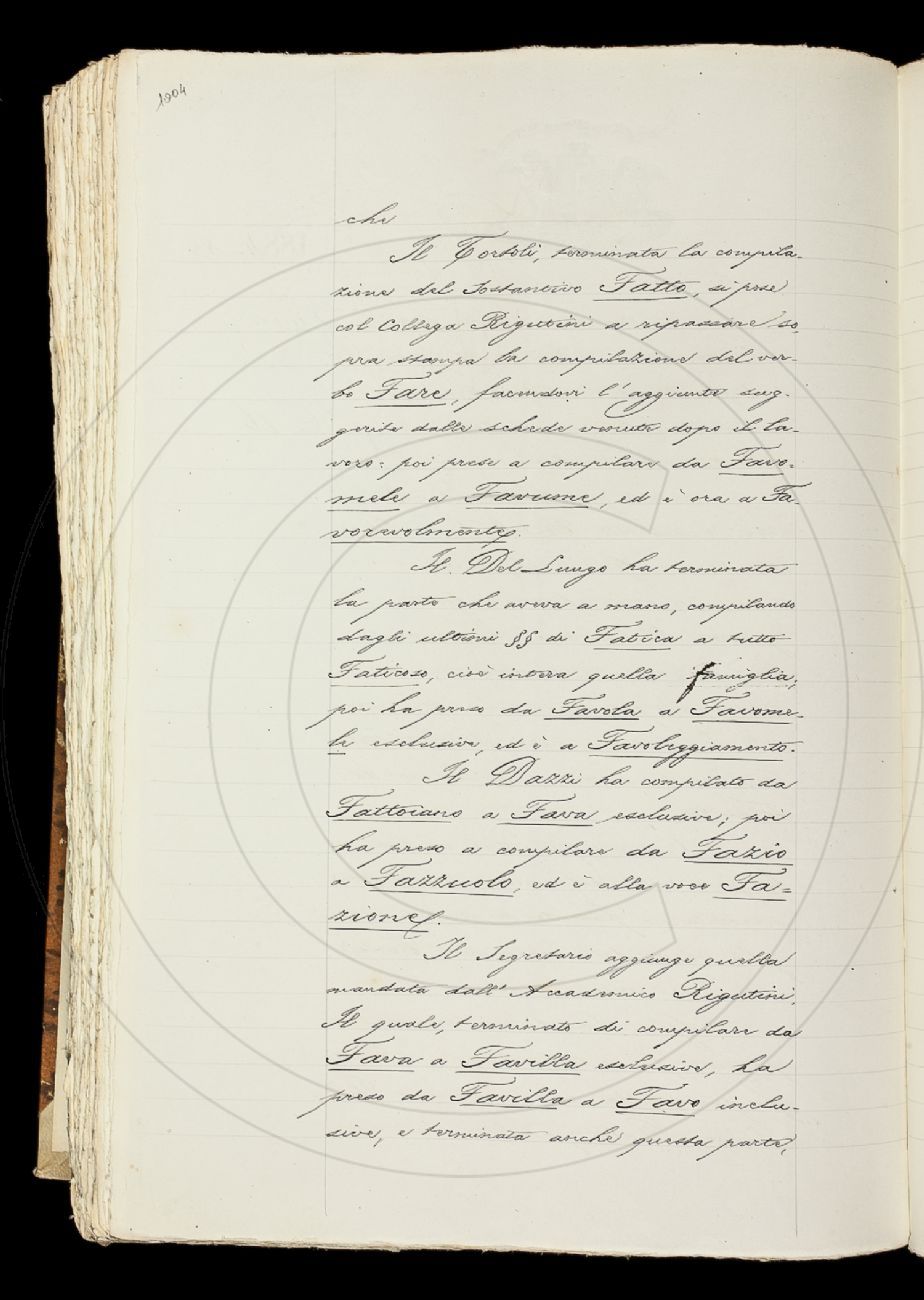 1904
che
Il Tortoli, terminata la compila-
zione del Sostantivo Fatto, si pose
col Collega Rigutini a ripassare so-
pra stampa la compilazione del ver-
bo Fare, facendovi l'aggiunte sug-
gerite dalle schede venute dopo il la-
voro: poi prese a compilare da Favo-
mele a Favume, ed è ora a Fa-
vorevolmente.
Il Del Lungo ha terminata
la parte che aveva a mano, compilando
dagli ultimi §§ di Fatica a tutto
Faticoso, cioè intera quella famiglia;
poi ha preso da Favola a Favome-
le esclusive, ed è a Favoleggiamento.
Il Dazzi ha compilato da
Fattoiano a Fava esclusive; poi
ha preso a compilare da Fazio
a Fazzuolo, ed è alla voce Fa=
zione.
Il Segretario aggiunge quella
mandata dall'Accademico Rigutini.
Il quale, terminato di compilare da
Fava a Favilla esclusive, ha
preso da Favilla a Favo inclu-
sive, e terminata anche questa parte,